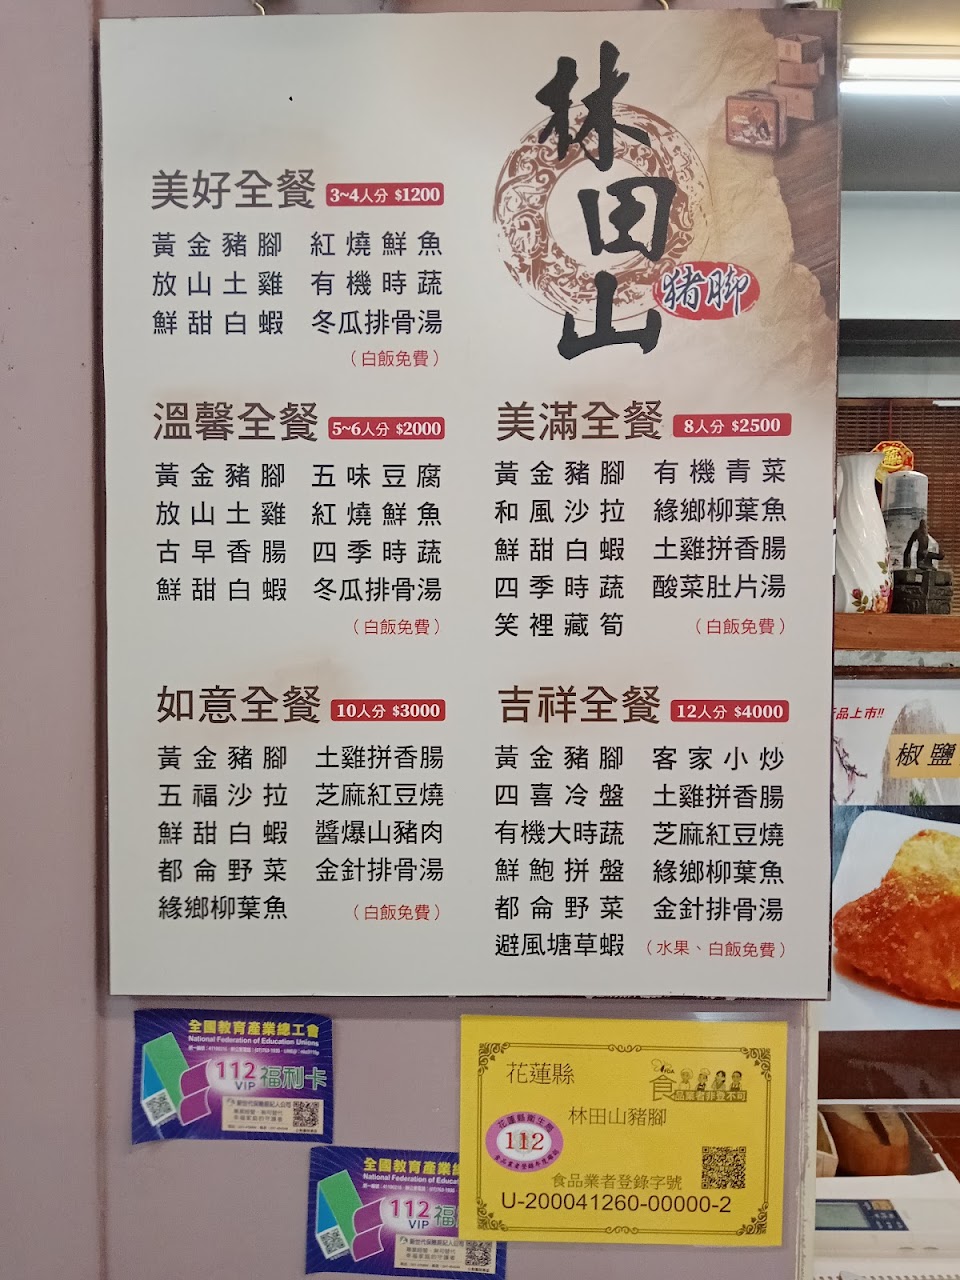 林田山
豬腳
美好全餐 3~4人分 $1200
黃金豬腳 紅燒鮮魚
放山土雞 有機時蔬
鮮甜白蝦 冬瓜排骨湯
（白飯免費）
溫馨全餐 5~6人分 $2000
黃金豬腳 五味豆腐
放山土雞 紅燒鮮魚
古早香腸 四季時蔬
鮮甜白蝦 冬瓜排骨湯
（白飯免費）
美滿全餐 8人分 $2500
黃金豬腳 有機青菜
和風沙拉 緣鄉柳葉魚
鮮甜白蝦 土雞拼香腸
四季時蔬 酸菜肚片湯
笑裡藏筍 （白飯免費）
如意全餐 10人分 $3000
黃金豬腳 土雞拼香腸
五福沙拉 芝麻紅豆燒
鮮甜白蝦 醬爆山豬肉
都侖野菜 金針排骨湯
緣鄉柳葉魚 （白飯免費）
吉祥全餐 12人分 $4000
黃金豬腳 客家小炒
四喜冷盤 土雞拼香腸
有機大時蔬 芝麻紅豆燒
鮮鮑拼盤 緣鄉柳葉魚
都侖野菜 金針排骨湯
避風塘草蝦 （水果、白飯免費）
品上市!!
椒鹽
全國教育產業總工會
National Federation of Education Unions
112 VIP 福利卡
全國教育產業總
National Federation of Educat
112 VIP 福
花蓮縣
食品業者非登不可
林田山豬腳
花蓮縣衛生局
112
食品業者登錄字號
U-200041260-00000-2